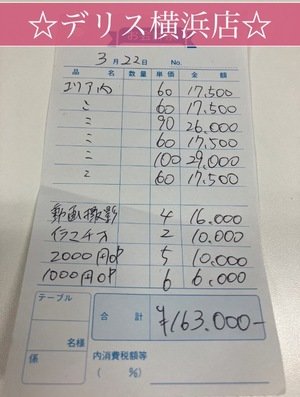 ☆デリス横浜店☆
3月22日 No.
品名 数量 単価 金額
エリア内 60 17,500
〃 60 17,500
〃 90 26,000
〃 60 17,500
〃 100 29,000
〃 60 17,500
動画撮影 4 16,000
イラマチオ 2 10,000
2000円OP 5 10,000
1000円OP 6 6,000
テーブル
名様
係
合計 ¥163,000-
内消費税額等
( %)